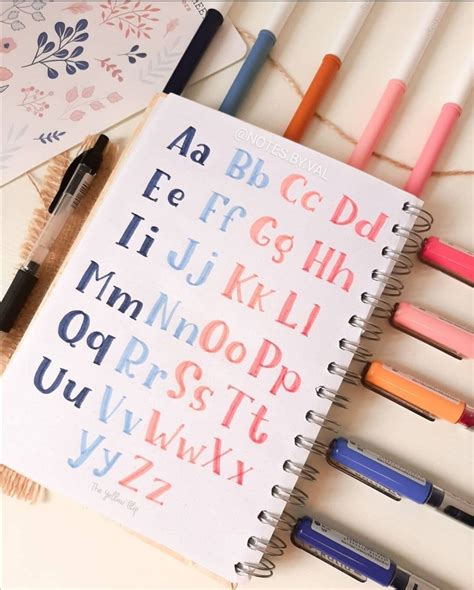 @NOTES.BY.VAL
Aa Bb Cc Dd
Ee Ff Gg Hh
Ii Jj Kk Ll
Mm Nn Oo Pp
Qq Rr Ss Tt
Uu Vv Ww Xx
yy Zz
The yellow lily